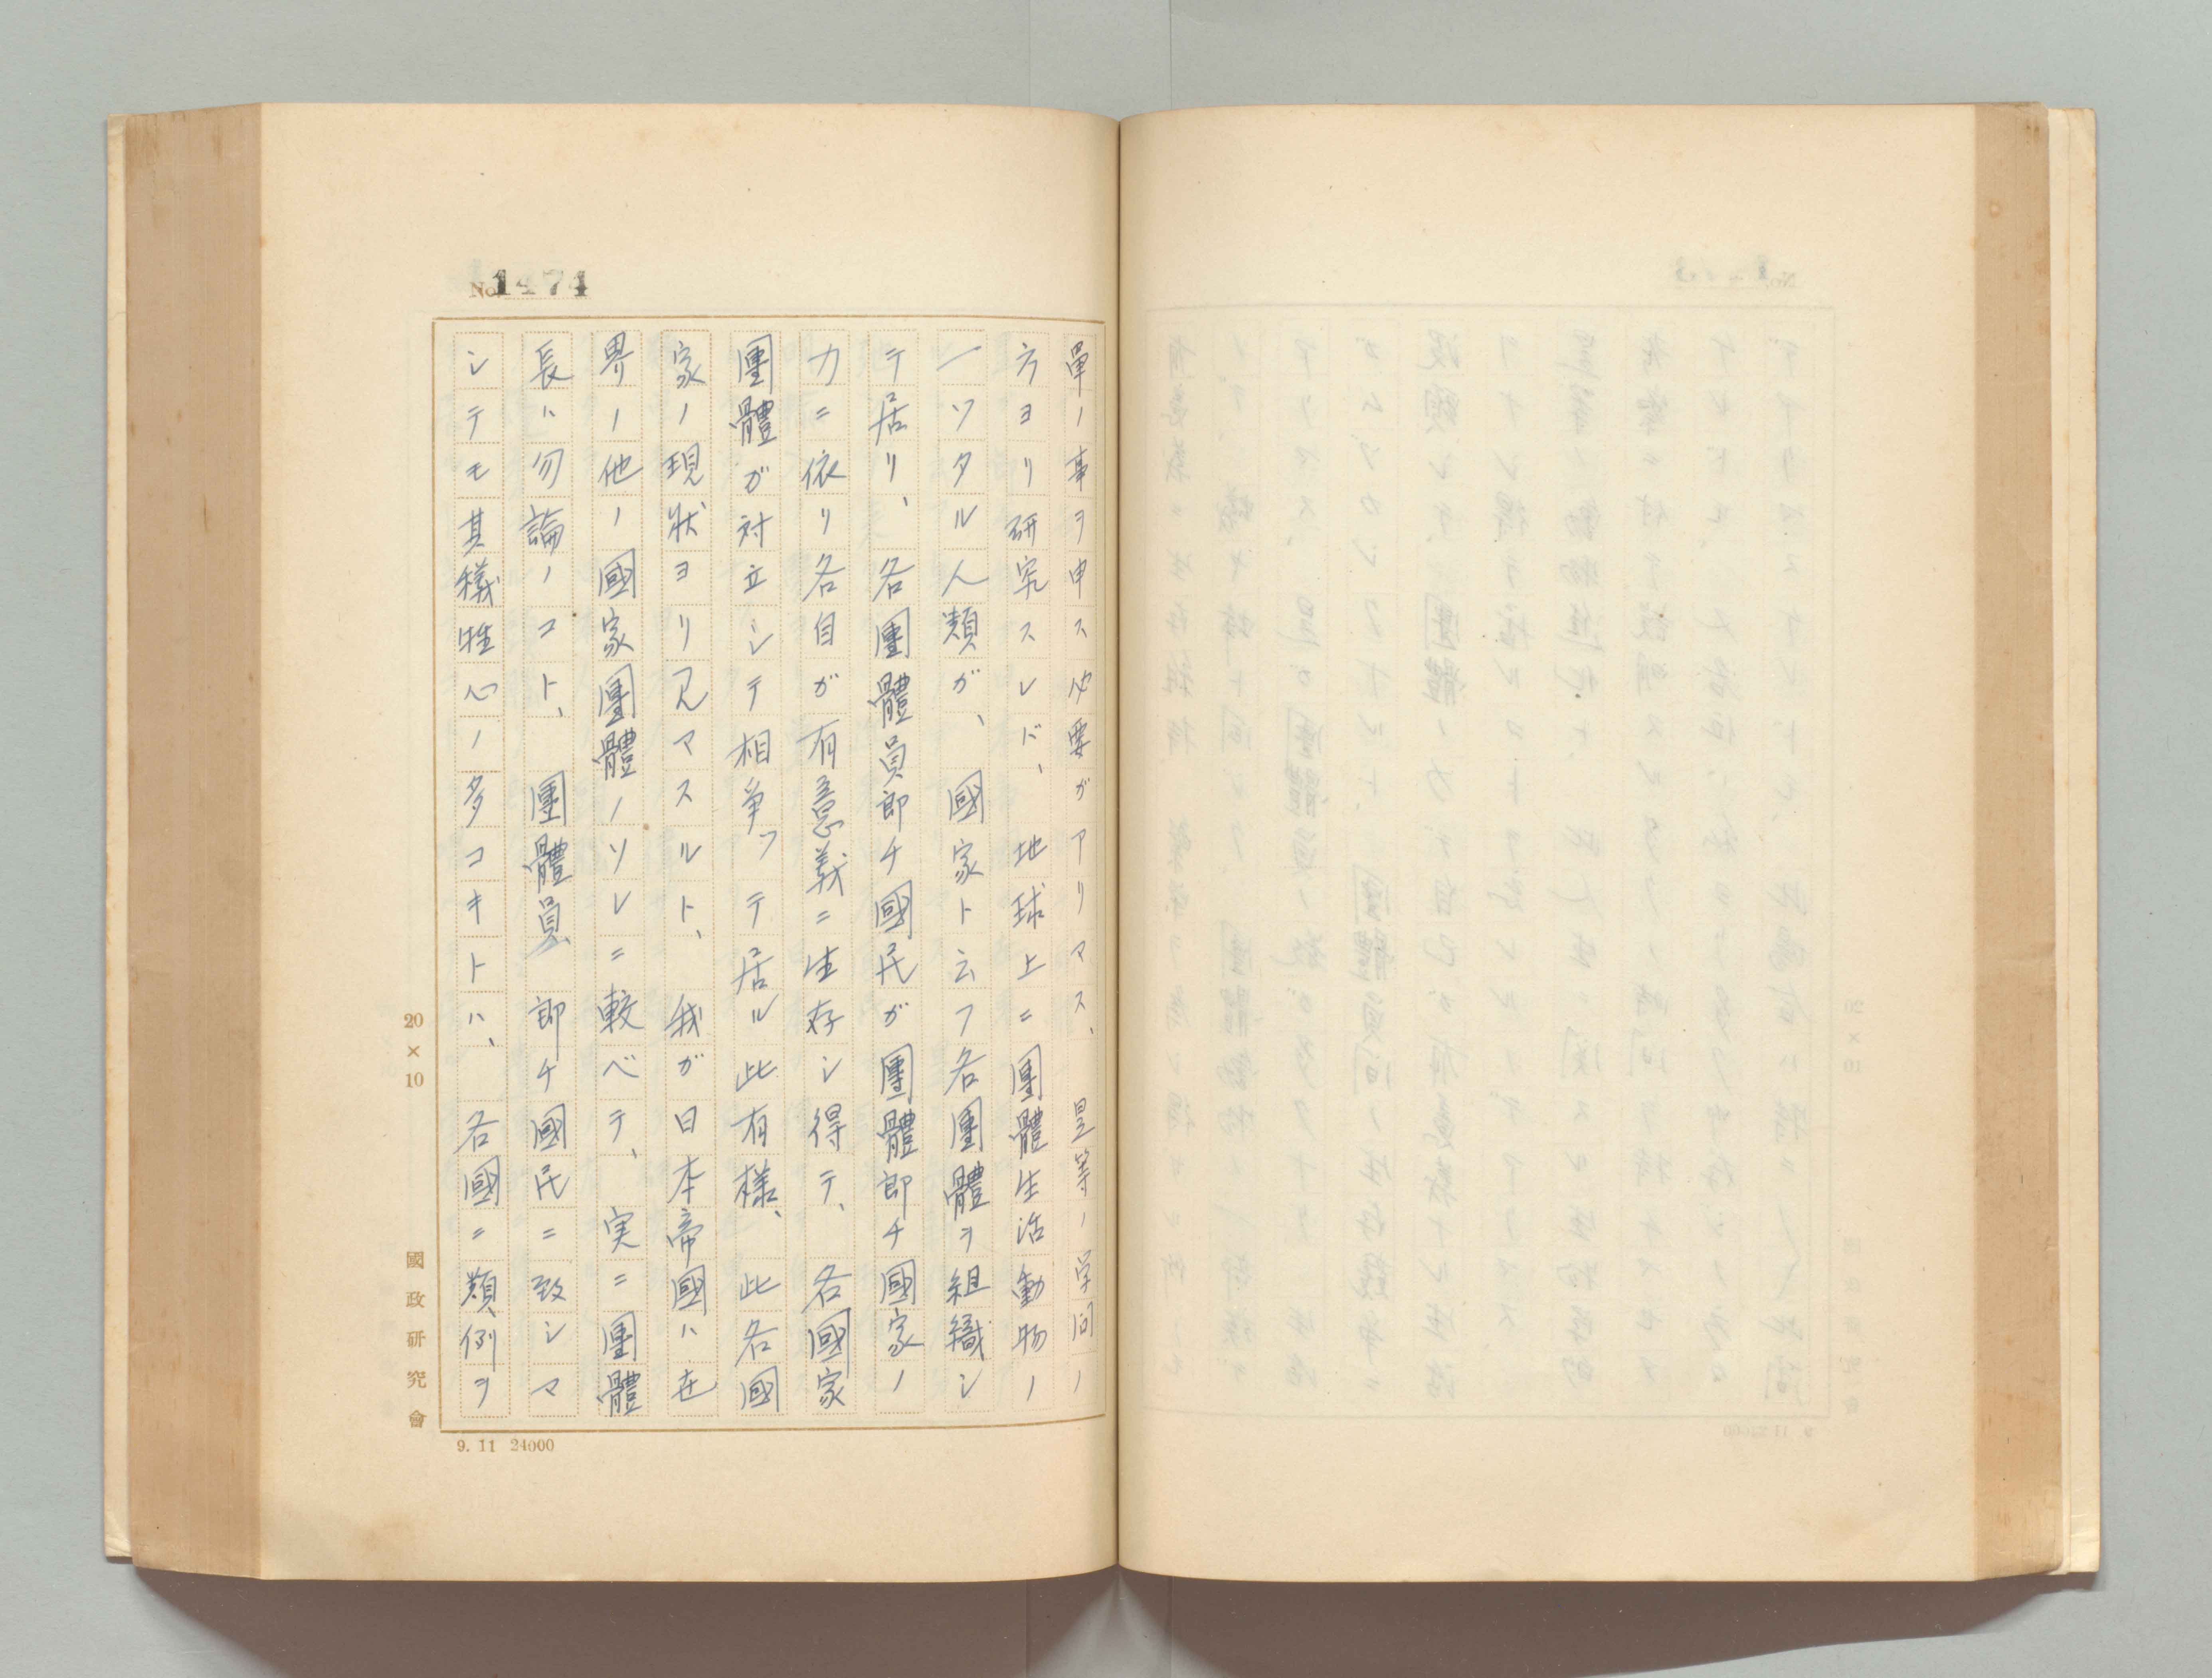 No. 1474
單ノ事ヲ申ス必要ガアリマス、是等ノ学问ノ
方ヨリ研究スレバ、地球上ニ團體生活動物ノ
一ツタル人類ガ、國家ト云フ各團體ヲ組織シ
テ居リ、各團體員即チ國民ガ團體即チ國家ノ
力ニ依リ各自ガ有意義ニ生存シ得テ、各國家
團體ガ対立シテ相爭ッテ居ル此有様、此各國
家ノ現狀ヨリ見マスルト、我ガ日本帝國ハ世
界ノ他ノ國家團體ノソレニ較ベテ、実ニ團體
長ハ勿論ノコト、團體員 即チ國民ニ致シマ
シテモ其犠牲心ノ多コキトハ、各國ニ類例ヲ
20×10
國政研究會
9. 11 24000